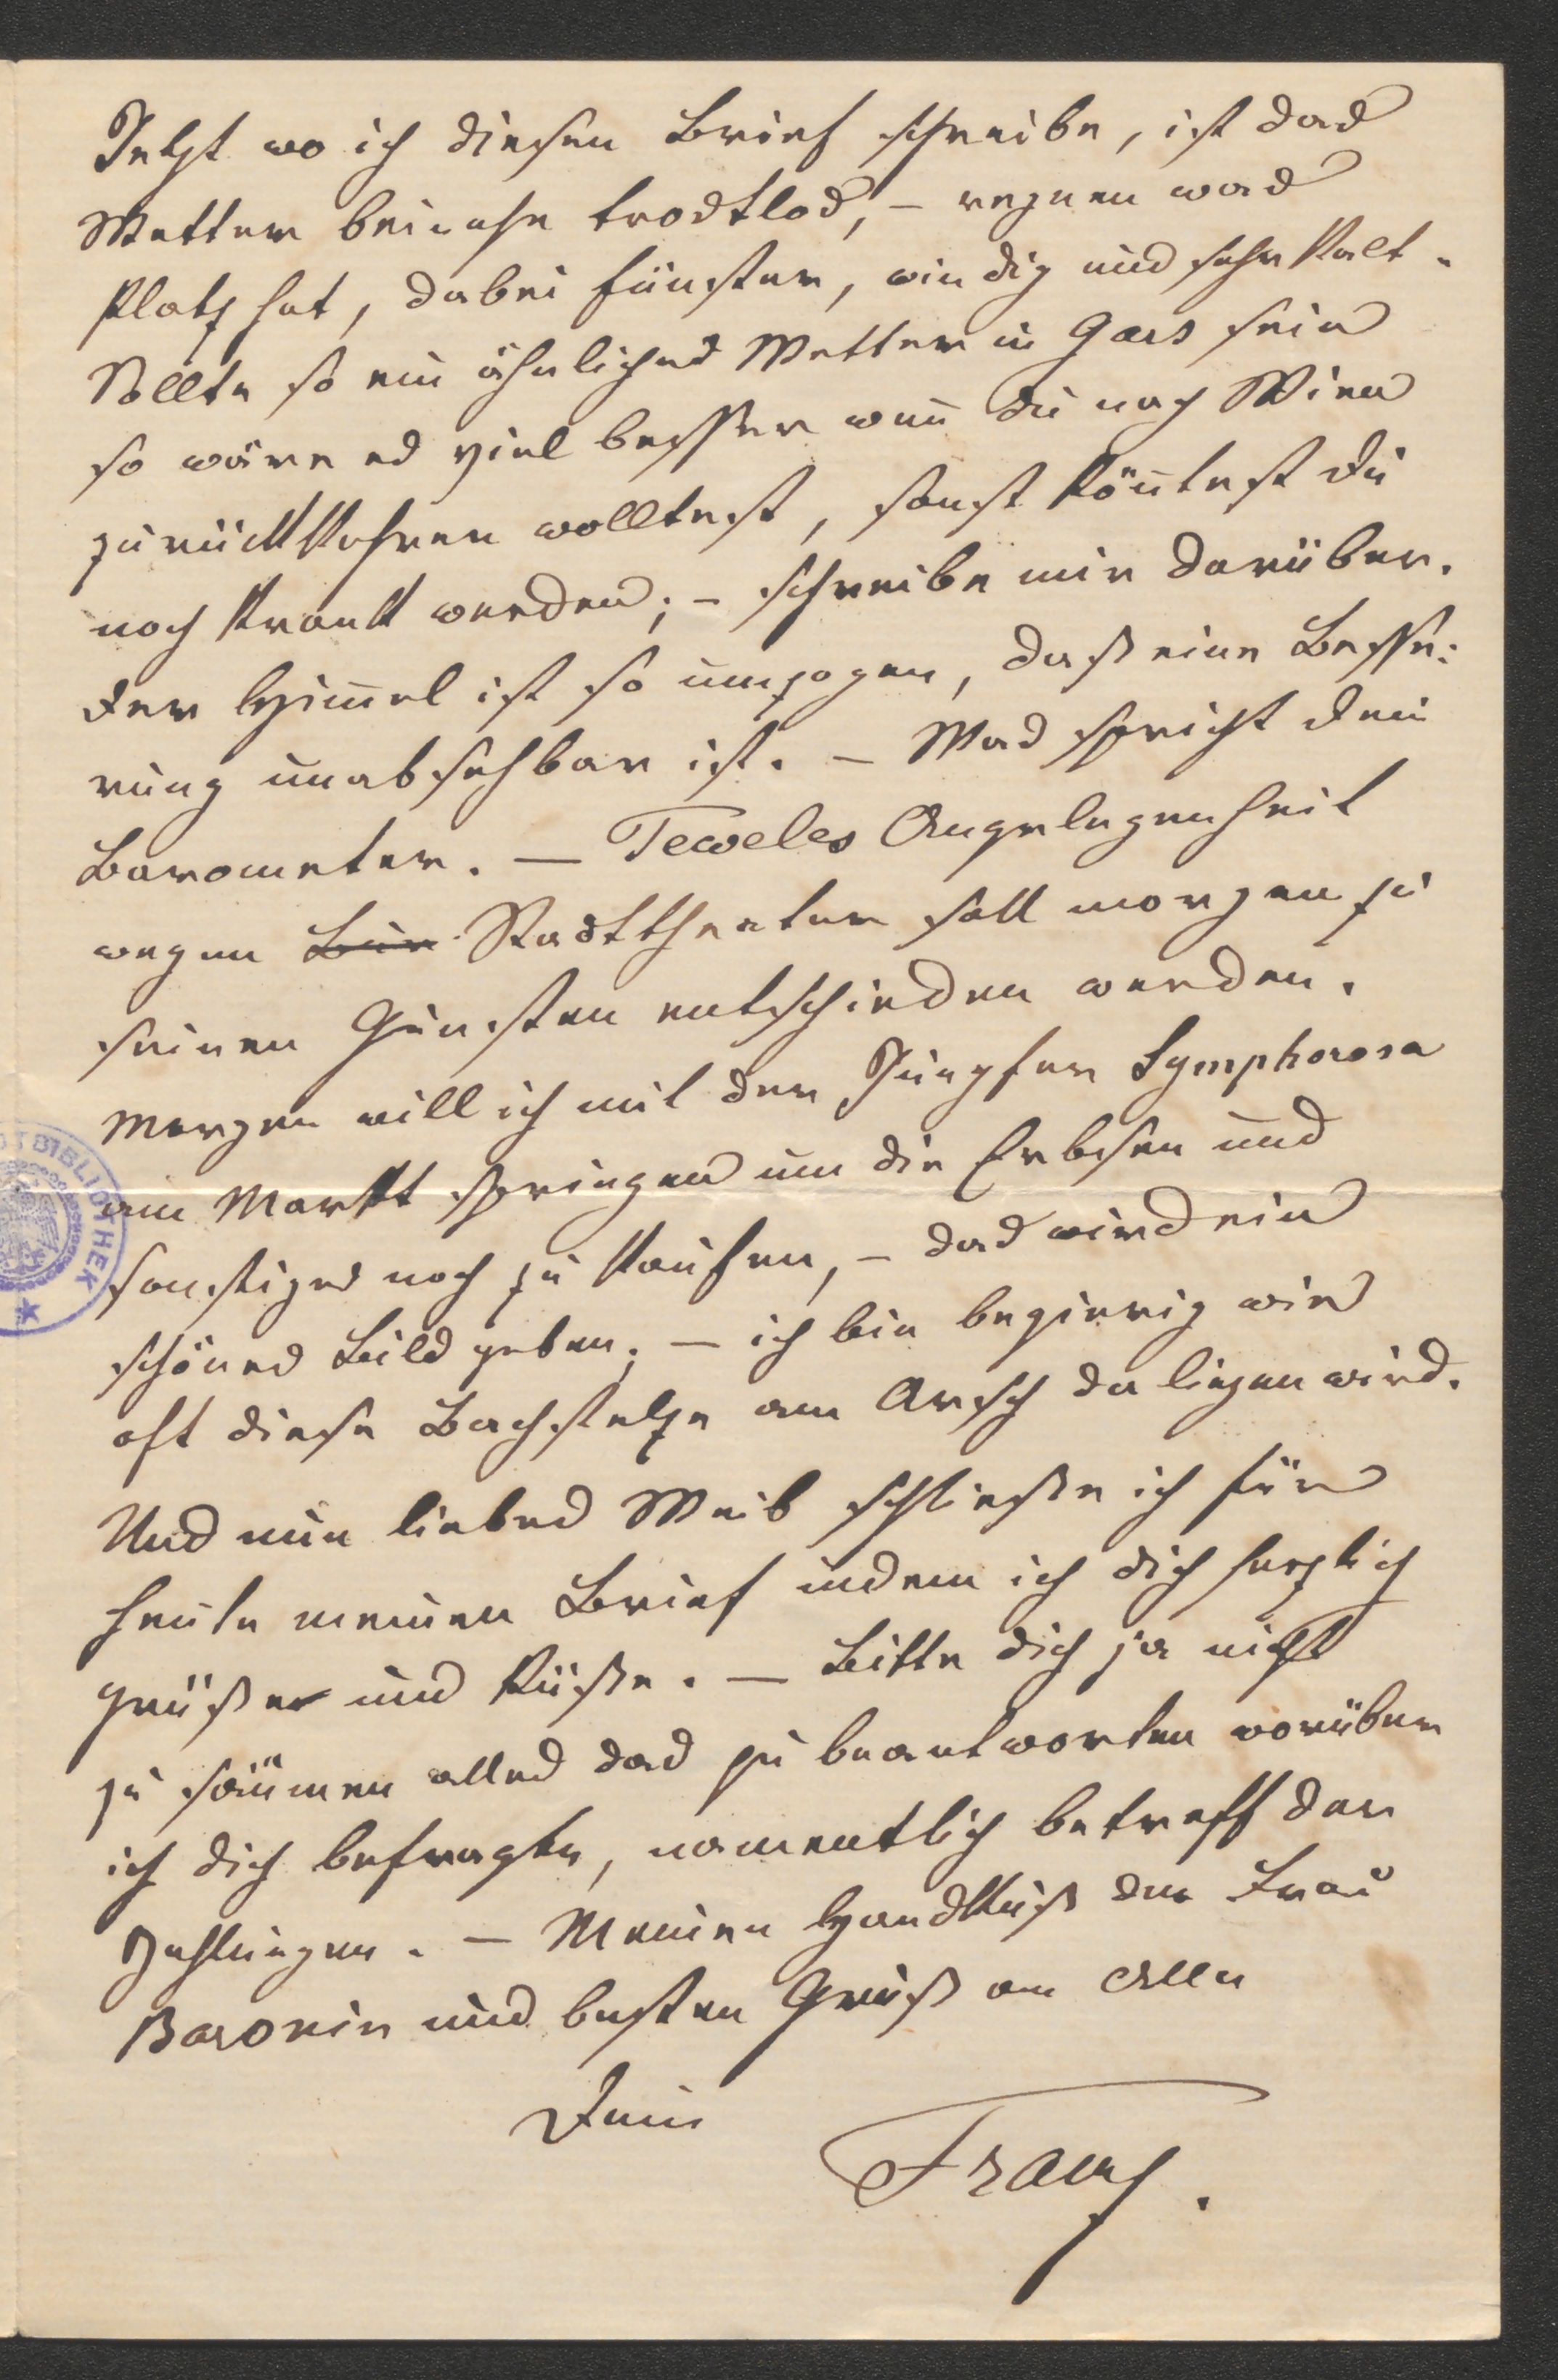 Jetzt wo ich diesen Brief schreibe, ist das
Wetter beinahe trostlos, – regnen was
Platz hat, dabei finster, windig und sehr kalt.
Sollte so ein ähnliches Wetter in Gars sein
so wäre es viel besser wen̄ Du nach Wien
zurückkehren wolltest, sonst kön̄test Du
noch krank werden; – schreibe mir darüber.
Der Him̄el ist so umzogen, daß eine Besse:
rung unabsehbar ist. – Was spricht Dein
Barometer. – Teweles Angelegenheit
wegen Stadttheater soll morgen zu
seinen Gunsten entschieden werden.
Morgen will ich mit der Jungfer Symphorosa
am Markt springen um die Erbsen und
sonstiges noch zu kaufen, – das wird ein
schönes Bild geben; – ich bin begierig wie
oft diese Bachstelze am Arsch da liegen wird.
Und nun liebes Weib schließe ich für
heute meinen Brief indem ich dich herzlich
grüße und küße. – Bitte dich ja nicht
zu säumen alles das zu beantworten worüber
ich dich befragte, namentlich betreff der
Zahlungen. – Meinen Handkuß der Frau
Baronin und besten Gruß an Alle
Dein
Franz.
BIBLIOTHEK